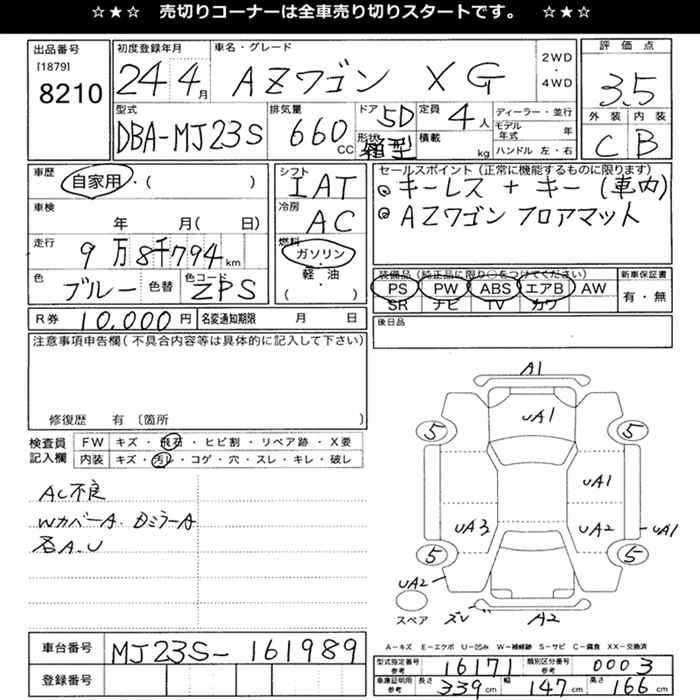 ☆★☆ 売切りコーナーは全車売り切りスタートです。 ☆★☆
出品番号
[1879]
8210
初度登録年月
24 4月
車名・グレード
AZワゴン XG
2WD
・
4WD
評価点
3.5
外装 内装
C B
型式
DBA-MJ23S
排気量
660 CC
ドア 5D
形状 箱型
定員 4人
積載 kg
ディーラー・並行
モデル年式 年
ハンドル 左・右
車歴
自家用・( )
車検
年 月( 日)
走行
9万8千794km
色 ブルー 色替
色コード ZPS
シフト
IAT
冷房
AC
燃料
ガソリン
・
軽・油
( )
セールスポイント(正常に機能するものに限ります)
◎キーレス+キー(車内)
◎AZワゴン フロアマット
装備品(純正品に限り○をつけてください)
PS PW ABS エアB AW
SR ナビ TV カワ
新車保証書
有・無
R券 10,000円
名変通知期限 月 日
後日品
注意事項申告欄(不具合内容等は具体的に記入して下さい)
修復歴 有〔箇所 〕
検査員記入欄
FW キズ・飛石・ヒビ割・リペア跡・X要
内装 キズ・汚レ・コゲ・穴・スレ・キレ・破レ
AC不良
WカバーA. DミラーA
各A.U
A1
UA1
5
5
UA1
UA3
UA2
UA1
5
5
UA2
スペア
ズレ
A2
A-キズ E-エクボ U-凹み W-補修跡 S-サビ C-腐食 XX-交換済
車台番号 MJ23S-161989
登録番号
型式指定番号参考 16171
類別区分番号参考 0003
車庫証明用参考 長さ 339cm 幅 147cm 高さ 166cm